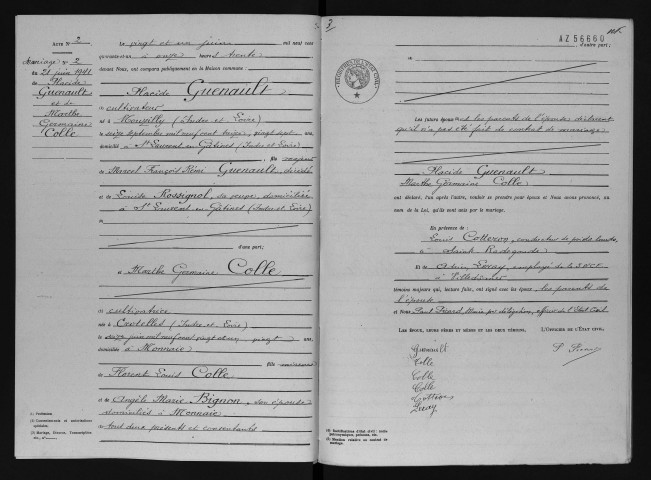 Acte N° 2
Mariage N° 2
du 21 juin 1941
de Placide
Guenault
et de
Marthe
Germaine
Colle
Le vingt et un juin mil neuf cent
quarante et un à onze heures trente
devant Nous, ont comparu publiquement en la Maison commune :
Placide Guenault
(1) cultivateur
né à (Indre et Loire)
le seize septembre mil neuf cent treize, vingt sept ans,
domicilié à St Laurent en Gâtines (Indre et Loire)
fils majeur
de Marcel François Rémi Guenault décédé
et
de Emilie Rossignol, sa veuve domiciliée
à St Laurent en Gâtines (Indre et Loire)
d'une part ;
et Marthe Germaine Colle
(1) cultivatrice
née à Crotelles (Indre et Loire)
le seize juin mil neuf cent vingt et un, vingt ans,
domiciliée à Monnaie
fille
de Florent Louis Colle
et
de Angèle Marie Bignon, son épouse
domiciliés à Monnaie
(2) tous deux présents et consentants
(1) Profession.
(2) Consentements et autorisations
spéciales.
(3) Mariage, Divorce, Transcription
3
AZ 56660
d'autre part ;
Les futurs époux et les parents de l'épouse déclarent
qu'il n'a pas été fait de contrat de mariage
Placide Guenault
Marthe Germaine Colle
ont déclaré, l'un après l'autre, vouloir se prendre pour époux et Nous avons prononcé, au
nom de la Loi, qu'ils sont unis par le mariage.
En présence de
Louis Cottereau, conducteur de poids lourds,
à Sainte Radegonde
Et de employé de la SNCF
à Villedômer
témoins majeurs qui, lecture faite, ont signé avec les époux, les parents de
l'épouse
et Nous Paul Picard, Maire par délégation, officier de l'Etat Civil
LES ÉPOUX, LEURS PÈRES ET MÈRES ET LES DEUX TÉMOINS,
L'OFFICIER DE L'ÉTAT CIVIL,
Guenault
Colle
Colle
Colle